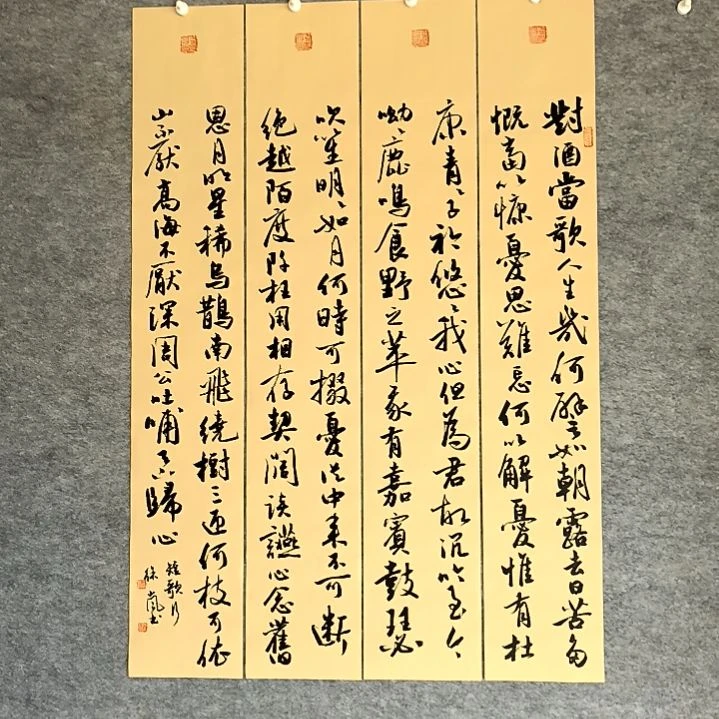 對酒當歌人生幾何譬如朝露去日苦多
慨當以慷憂思難忘何以解憂惟有杜
康青〻子衿悠〻我心但為君故沉吟至今
呦〻鹿鳴食野之苹我有嘉賓鼓瑟
吹笙明〻如月何時可掇憂從中來不可斷
絕越陌度阡枉用相存契闊談讌心念舊
恩月明星稀烏鵲南飛繞樹三匝何枝可依
山不厭高海不厭深周公吐哺天下歸心
短歌行
徐嵐書